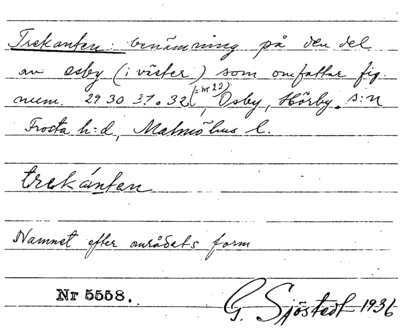 Trekanten: benämning på den del
av Osby (i väster) som omfattar fig.
num. 29 30 31 o. 32 (= nr 22), Osby, Hörby s:n
Frosta h:d, Malmöhus l.
trekánten
Namnet efter områdets form
Nr 5558.
G. Sjöstedt 1936